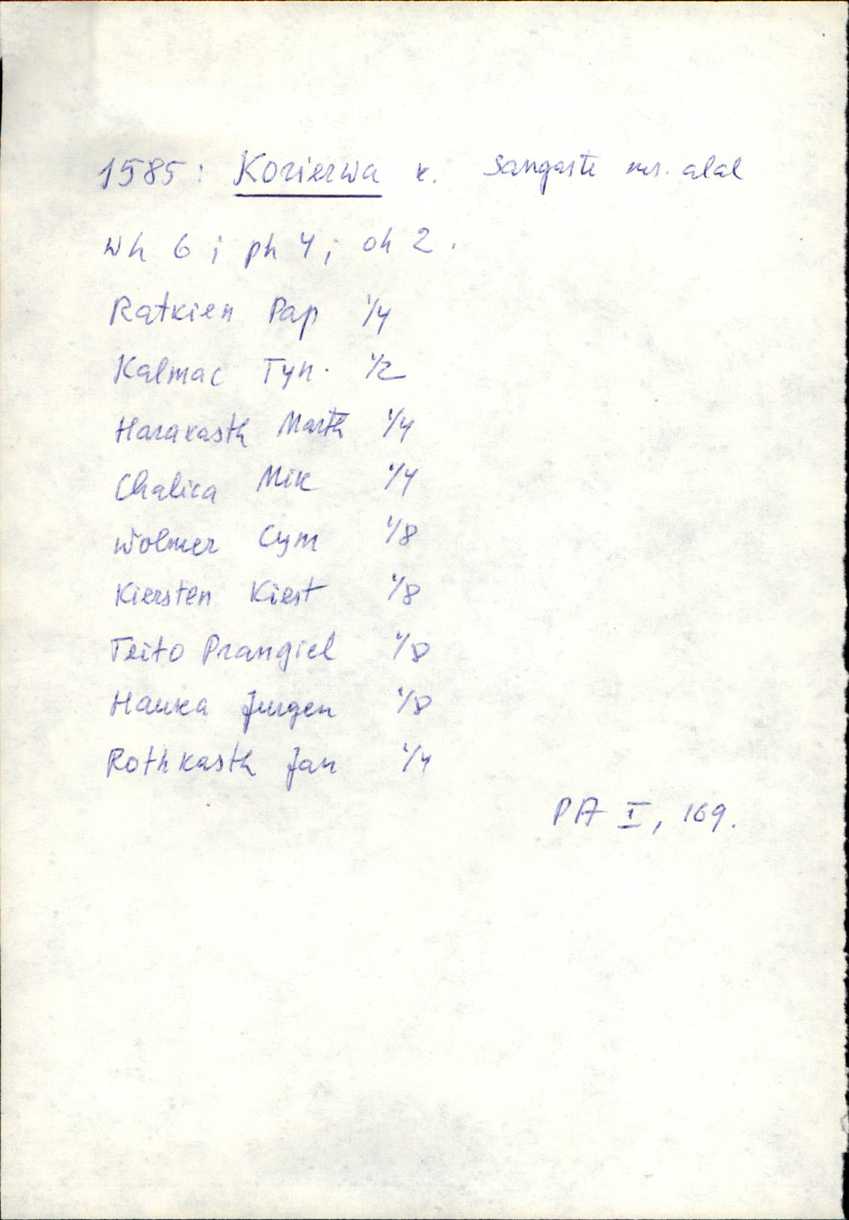 1585: Korierwa k. Sangaste mr. alal
Wh 6; ph 4; oh 2.
Ratkien Pap 1/4
Kalmac Tyn. 1/2
Harakasth Marth 1/4
Chalica Mik 1/4
Wolmer Cym 1/8
Kiersten Kierst 1/8
Teito Prangiel 1/8
Hanka Jurgen 1/8
Rothkasth Jan 1/4
PA I, 169.